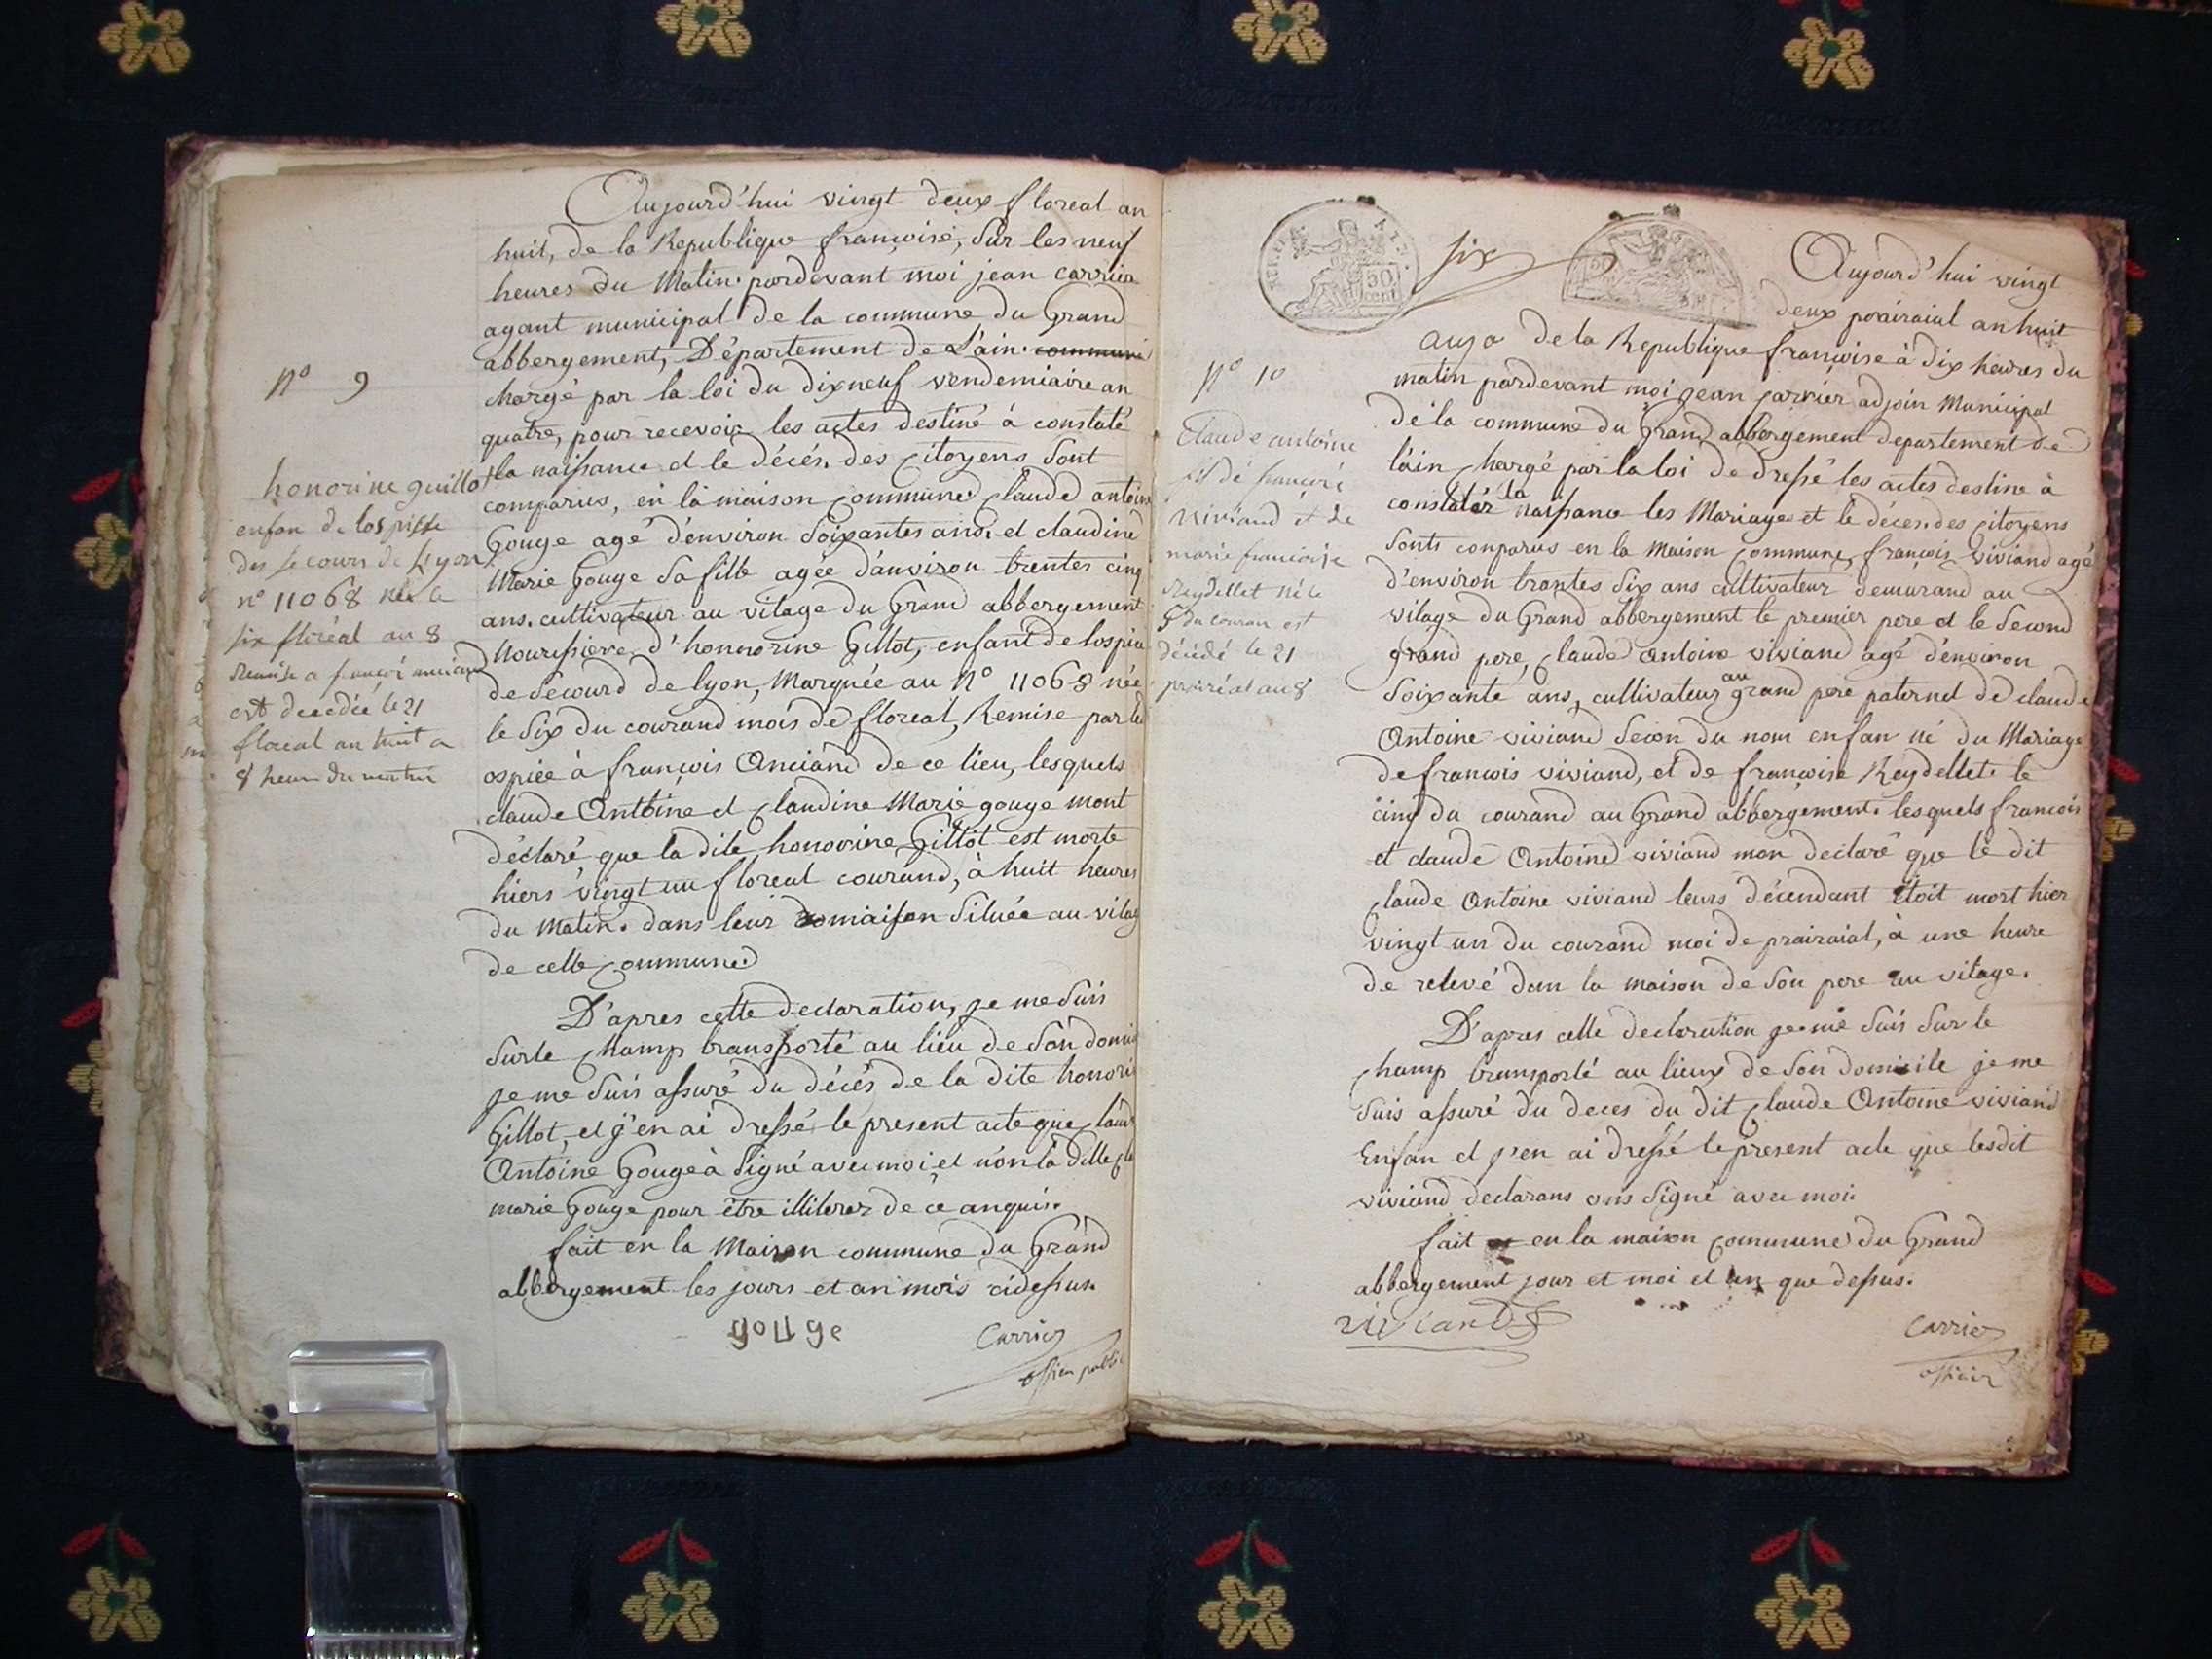 Aujourd'hui vingt deux floreal an
huit, de la Republique françoise, Sur les neuf
heures du Matin. pardevant moi jean carrier
agant municipal de la commune du Grand
abbergement, Département de L'ain. commune
chargé par la loi du dixneuf vendemiaire an
quatre, pour recevoir les actes destiné à constaté
la naissance et le décés. des citoyens Sont
comparus, en la maison commune claude antoine
Gouge agé d'environ Soixantes ans. et claudine
Marie Gouge Sa fille agée d'anviron trentes cinq
ans. cultivateur au vilage du Grand abbergement
Nourissiere d'honnorine Gillot, enfant de lospice
de Secourd de lyon, Marquée au N° 11068 née
le Six du courand mois de floreal, Remise par led
ospice à françois Anciand de ce lieu, lesquels
claude Antoine et claudine Marie gouge mont
déclaré que la dite honorine Gillot est morte
hiers vingt un floreal courand, à huit heures
du Matin. dans leur maison Située au vilag
de cette commune
D'apres cette declaration, je me Suis
Surle champ transporté au lieu de Son domi
je me Suis assuré du décés de la dite honori
Gillot, et j'en ai dressé le present acte que claud
Antoine Gouge à Signé avec moi et non la dille cla
marie Gouge pour être illiterez de ce anquis.
fait en la Maison commune du Grand
abbergement les jours et an mois cidessus.
gouge
Carrier
offien publi
N° 9
honorine guillot
enfan de lospisse
des secours de Lyon
n° 11068 née le
six floréal an 8
remise a françoi anciand
est decedée le 21
floreal an huit a
8 heur du matin
six
Aujourd'hui vingt
deux porairaial an huit
de la Republique françoise à dix heures du
matin pardevant moi jean carrier adjoin Municipal
de la commune du Grand abbergement departement de
l'ain chargé par la loi de dressé les actes destine à
constater la naissance les Mariages et le déces. des citoyens
Sonts conparus en la Maison commune, francois viviand agé
d'environ trantes Six ans cultivateur demurand au
vilage du Grand abbergement le premier pere et le Second
grand pere, claude Antoine viviand agé d'environ
Soixante ans, cultivateur au grand pere paternel de claude
Antoine viviand Secon du nom enfan né du Mariage
de francois viviand, et de françoise Reydellet. le
cinq du courand au Grand abbergement. lesquels francois
et claude Antoine viviand mon declaré que le dit
claude Antoine viviand leurs décendant étoit mort hier
vingt un du courand moi de prairaial, à une heure
de relevé dan la maison de Son pere au vilage.
D'apres cette declaration je me Suis Sur le
champ transporté au lieux de Son domicile je me
Suis assuré du deces du dit claude Antoine viviand
Enfan et j'en ai dressé le present acte que lesdit
viviand declarans ons Signé avec moi.
fait en la maison commune du Grand
abbergement jour et moi et an que dessus.
viviand
Carrier
officier
N° 10
Claude antoine
fils de françoi
viviand et de
marie françoise
reydellet né le
5 du couran est
décédé le 21
prairéal an 8
50
cent